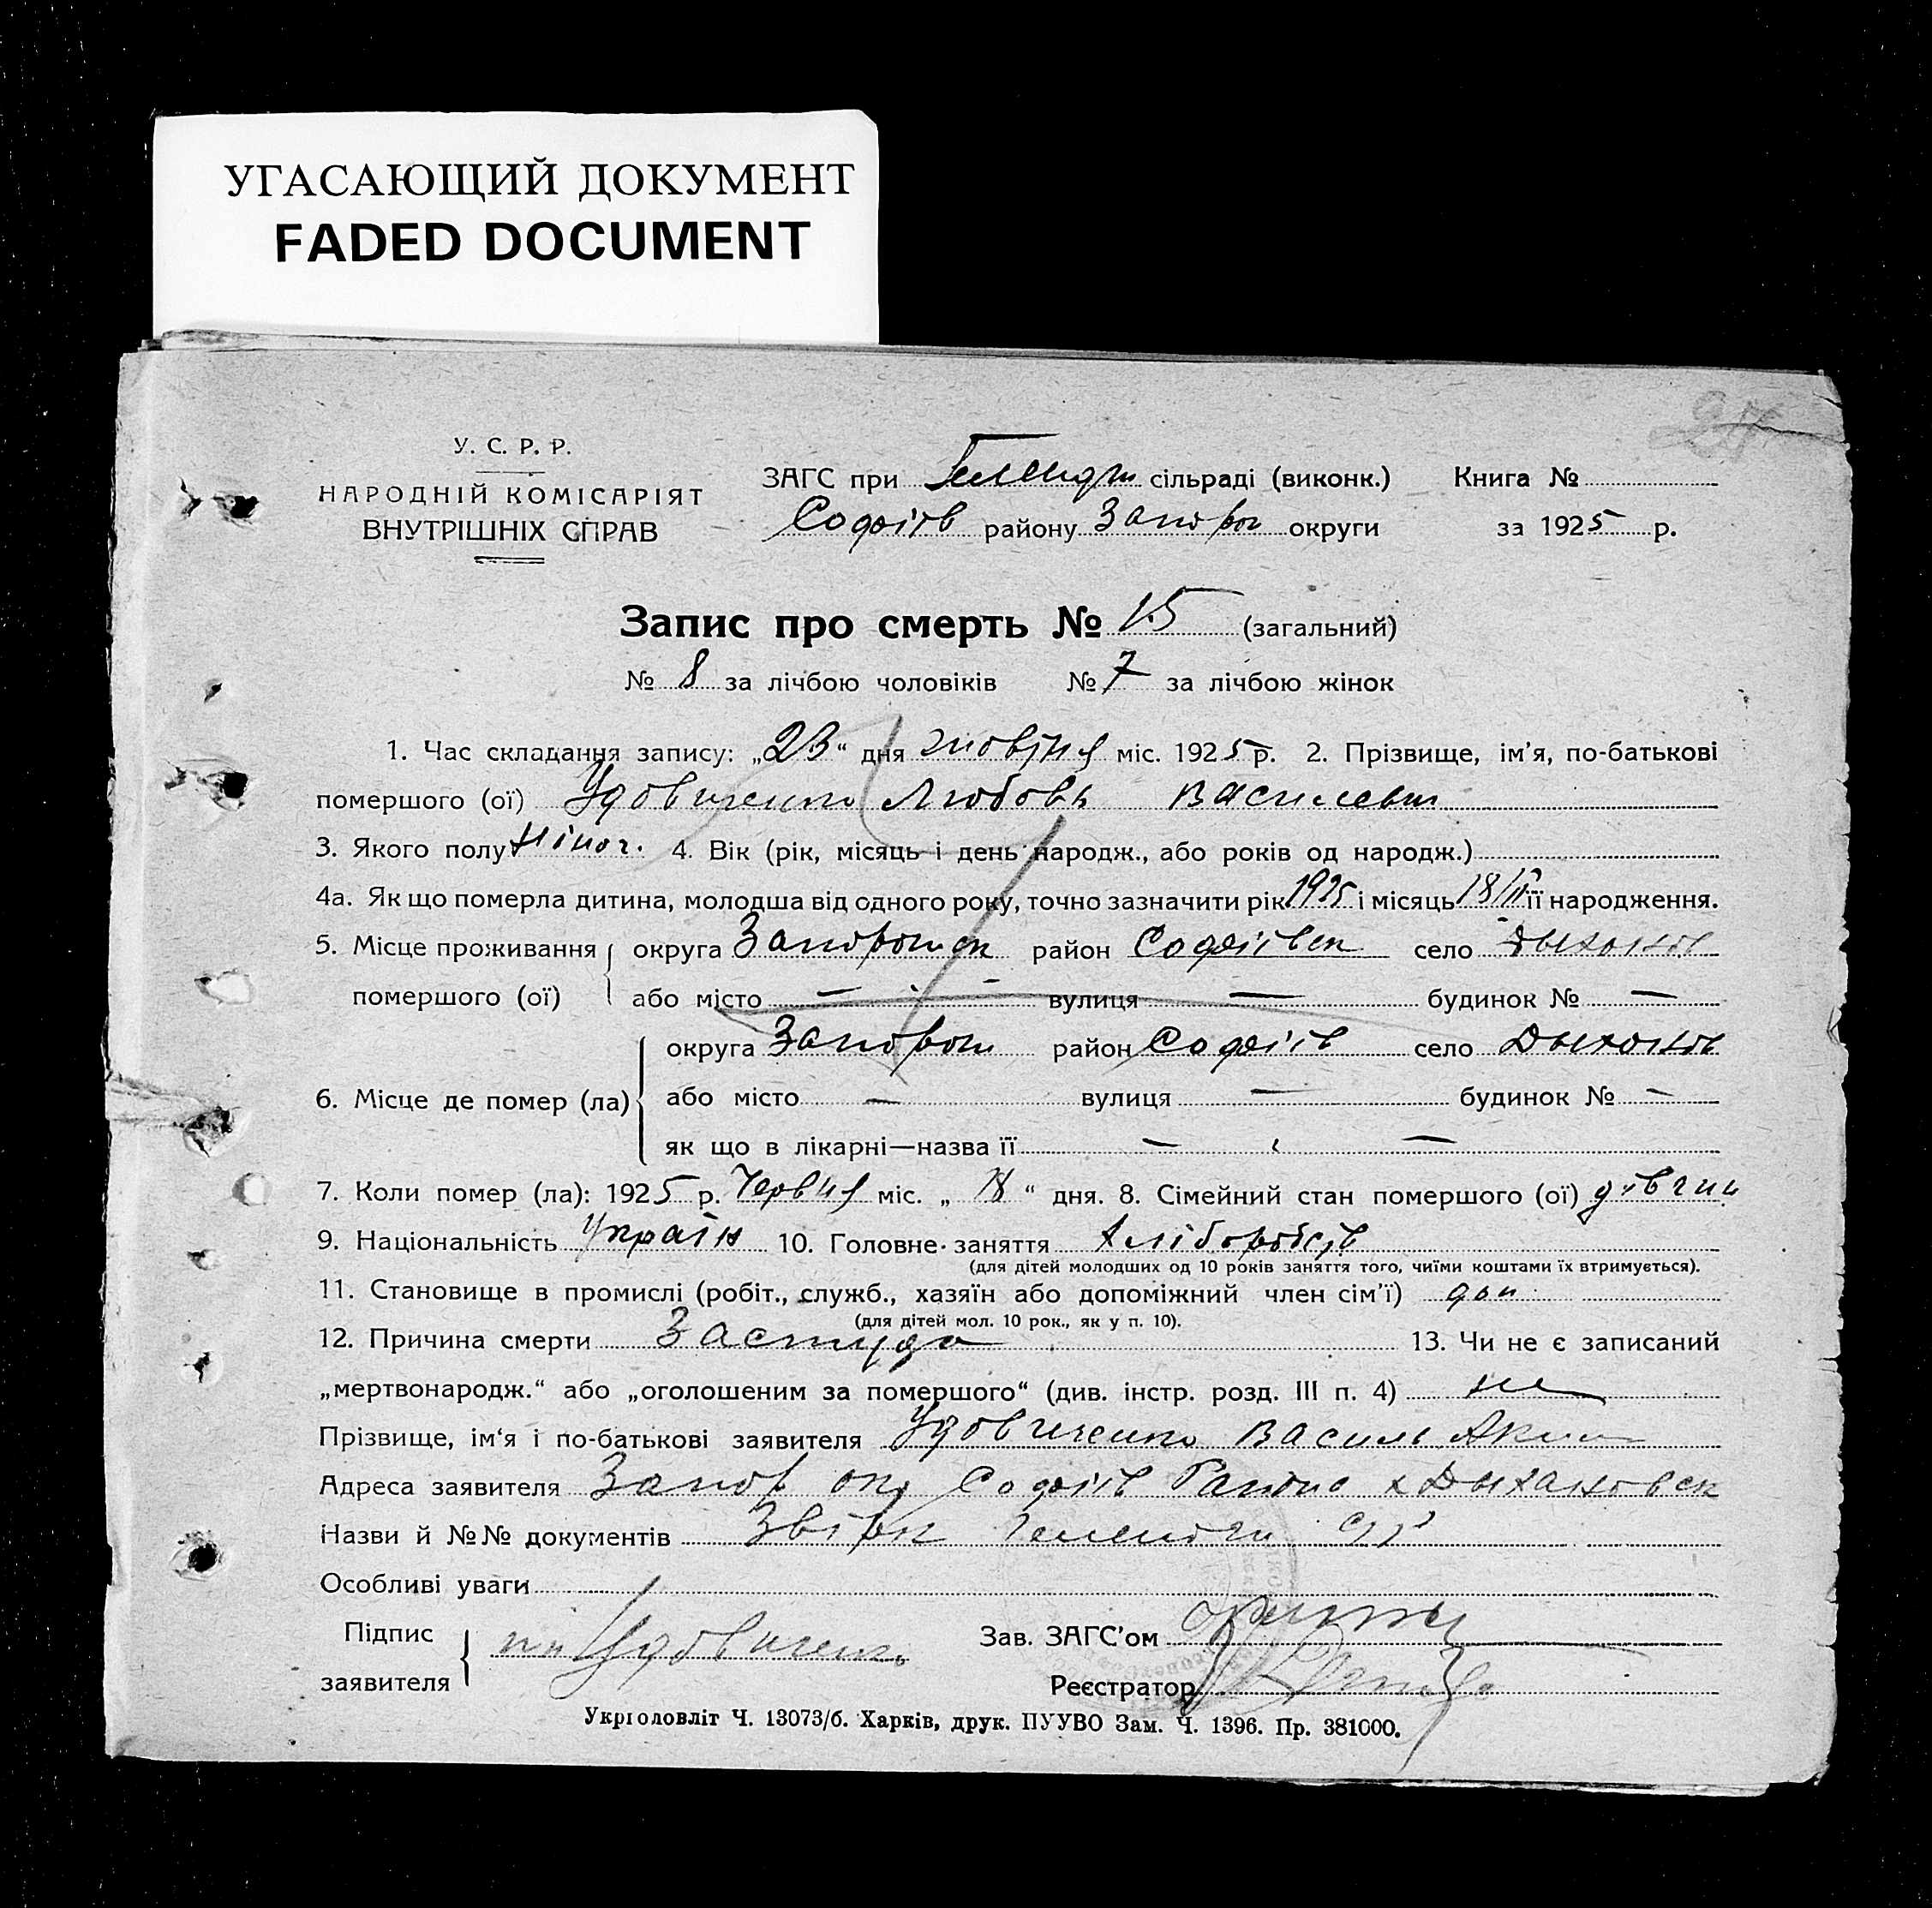 УГАСАЮЩИЙ ДОКУМЕНТ
FADED DOCUMENT
У. С. Р. Р.
НАРОДНІЙ КОМІСАРІЯТ
ВНУТРІШНІХ СПРАВ
ЗАГС при сільраді (виконк.)
Софіїв району Запорож округи
Книга №
за 1925 р.
Запис про смерть № 15 (загальний)
№ 8 за лічбою чоловіків № 7 за лічбою жінок
1. Час складання запису: „23“ дня жовтня міс. 1925 р. 2. Прізвище, ім'я, по-батькові
помершого (ої) Удовиченко Любовь Василевн
3. Якого полу жіноч. 4. Вік (рік, місяць і день народж., або років од народж.)
4а. Як що померла дитина, молодша від одного року, точно зазначити рік 1925 і місяць її народження.
5. Місце проживання округа район Софіівск село
помершого (ої) або місто — вулиця — будинок № —
округа Запорож район Софіів село
6. Місце де помер (ла) або місто — вулиця — будинок № —
як що в лікарні—назва її — —
7. Коли помер (ла): 1925 р. Червня міс. „18“ дня. 8. Сімейний стан помершого (ої) дівчин
9. Національність Украін 10. Головне заняття Хлібороб
(для дітей молодших од 10 років заняття того, чиїми коштами їх втримується).
11. Становище в промислі (робіт., служб., хазяїн або допоміжний член сім'ї) доп
(для дітей мол. 10 рок., як у п. 10).
12. Причина смерти Застуда 13. Чи не є записаний
„мертвонародж.“ або „оголошеним за помершого“ (див. інстр. розд. III п. 4) не
Прізвище, ім'я і по-батькові заявителя Удовиченко Василь Аким
Адреса заявителя Запор окр Софіів Району х
Назви й №№ документів
Особливі уваги
Підпис
заявителя Удовиченко
Зав. ЗАГС'ом
Реєстратор
Укрголовліт Ч. 13073/б. Харків, друк. ПУУВО Зам. Ч. 1396. Пр. 381000.